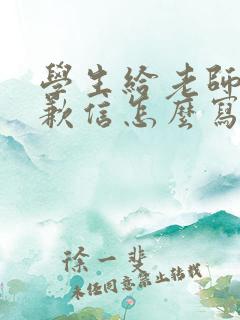 學生給老師
歉信怎麼寫
徐一斐
未经同意禁止转载